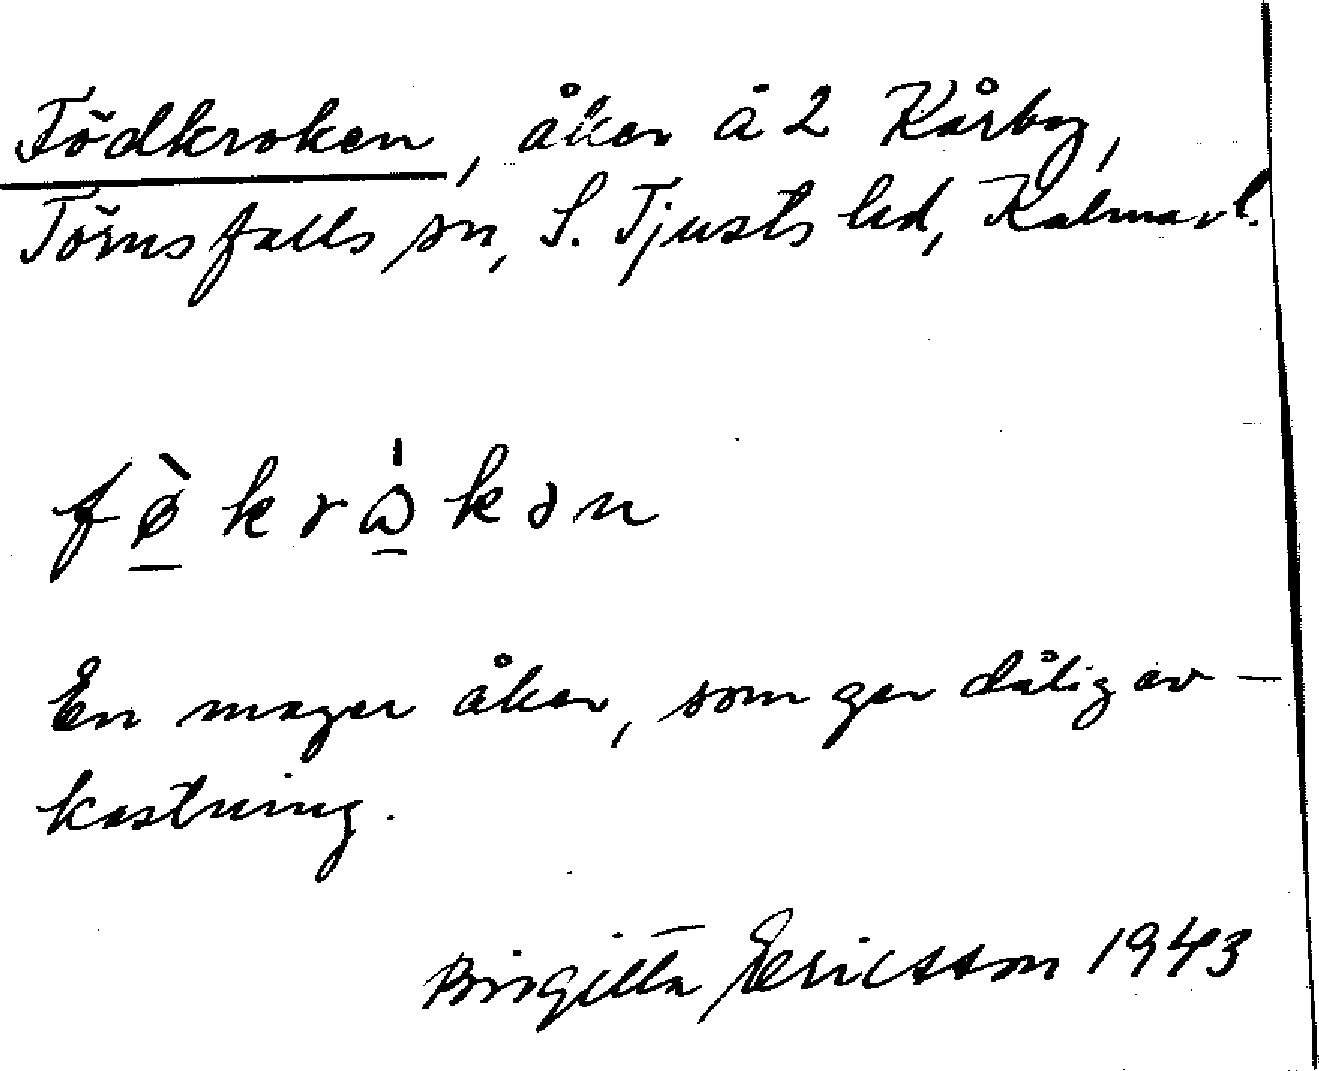 Födkroken, åker å 2 Kårby,
Törnsfalls sn, S. Tjusts hd, Kalmar l.
fø̀krⱺ̍kən
En mager åker, som ger dålig av-
kastning.
Birgitta Ericsson 1943